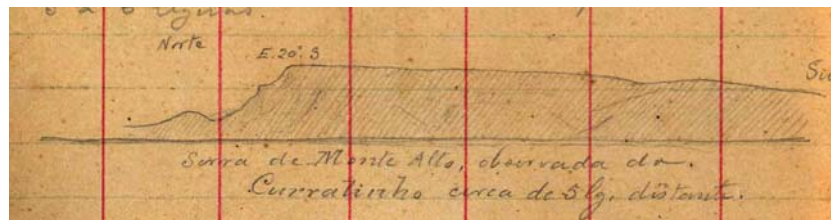 5 a 6 leguas.
Norte
E. 20° S
Su
Serra de Monte Alto, observada do
Curralinho cerca de 5 lg. distante.